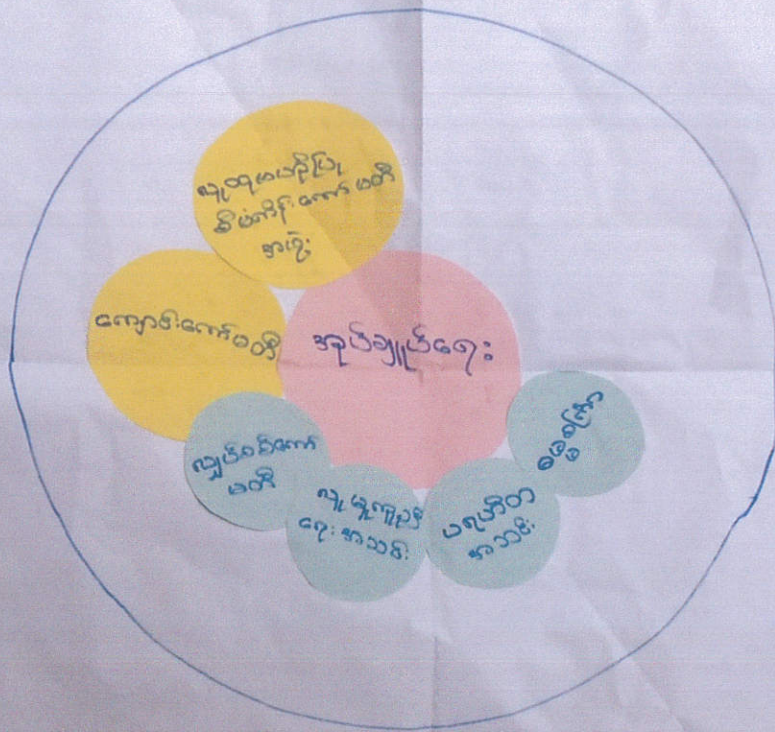 လူထုဗဟိုပြု
စီမံကိန်းကော်မတီ
အဖွဲ့
ကျောင်းကော်မတီ
အုပ်ချုပ်ရေး
လျှပ်စစ်ကော်
မတီ
လူမှုကူညီ
ရေးအသင်း
ပရဟိတ
အသင်း
ဓမ္မစကြာ